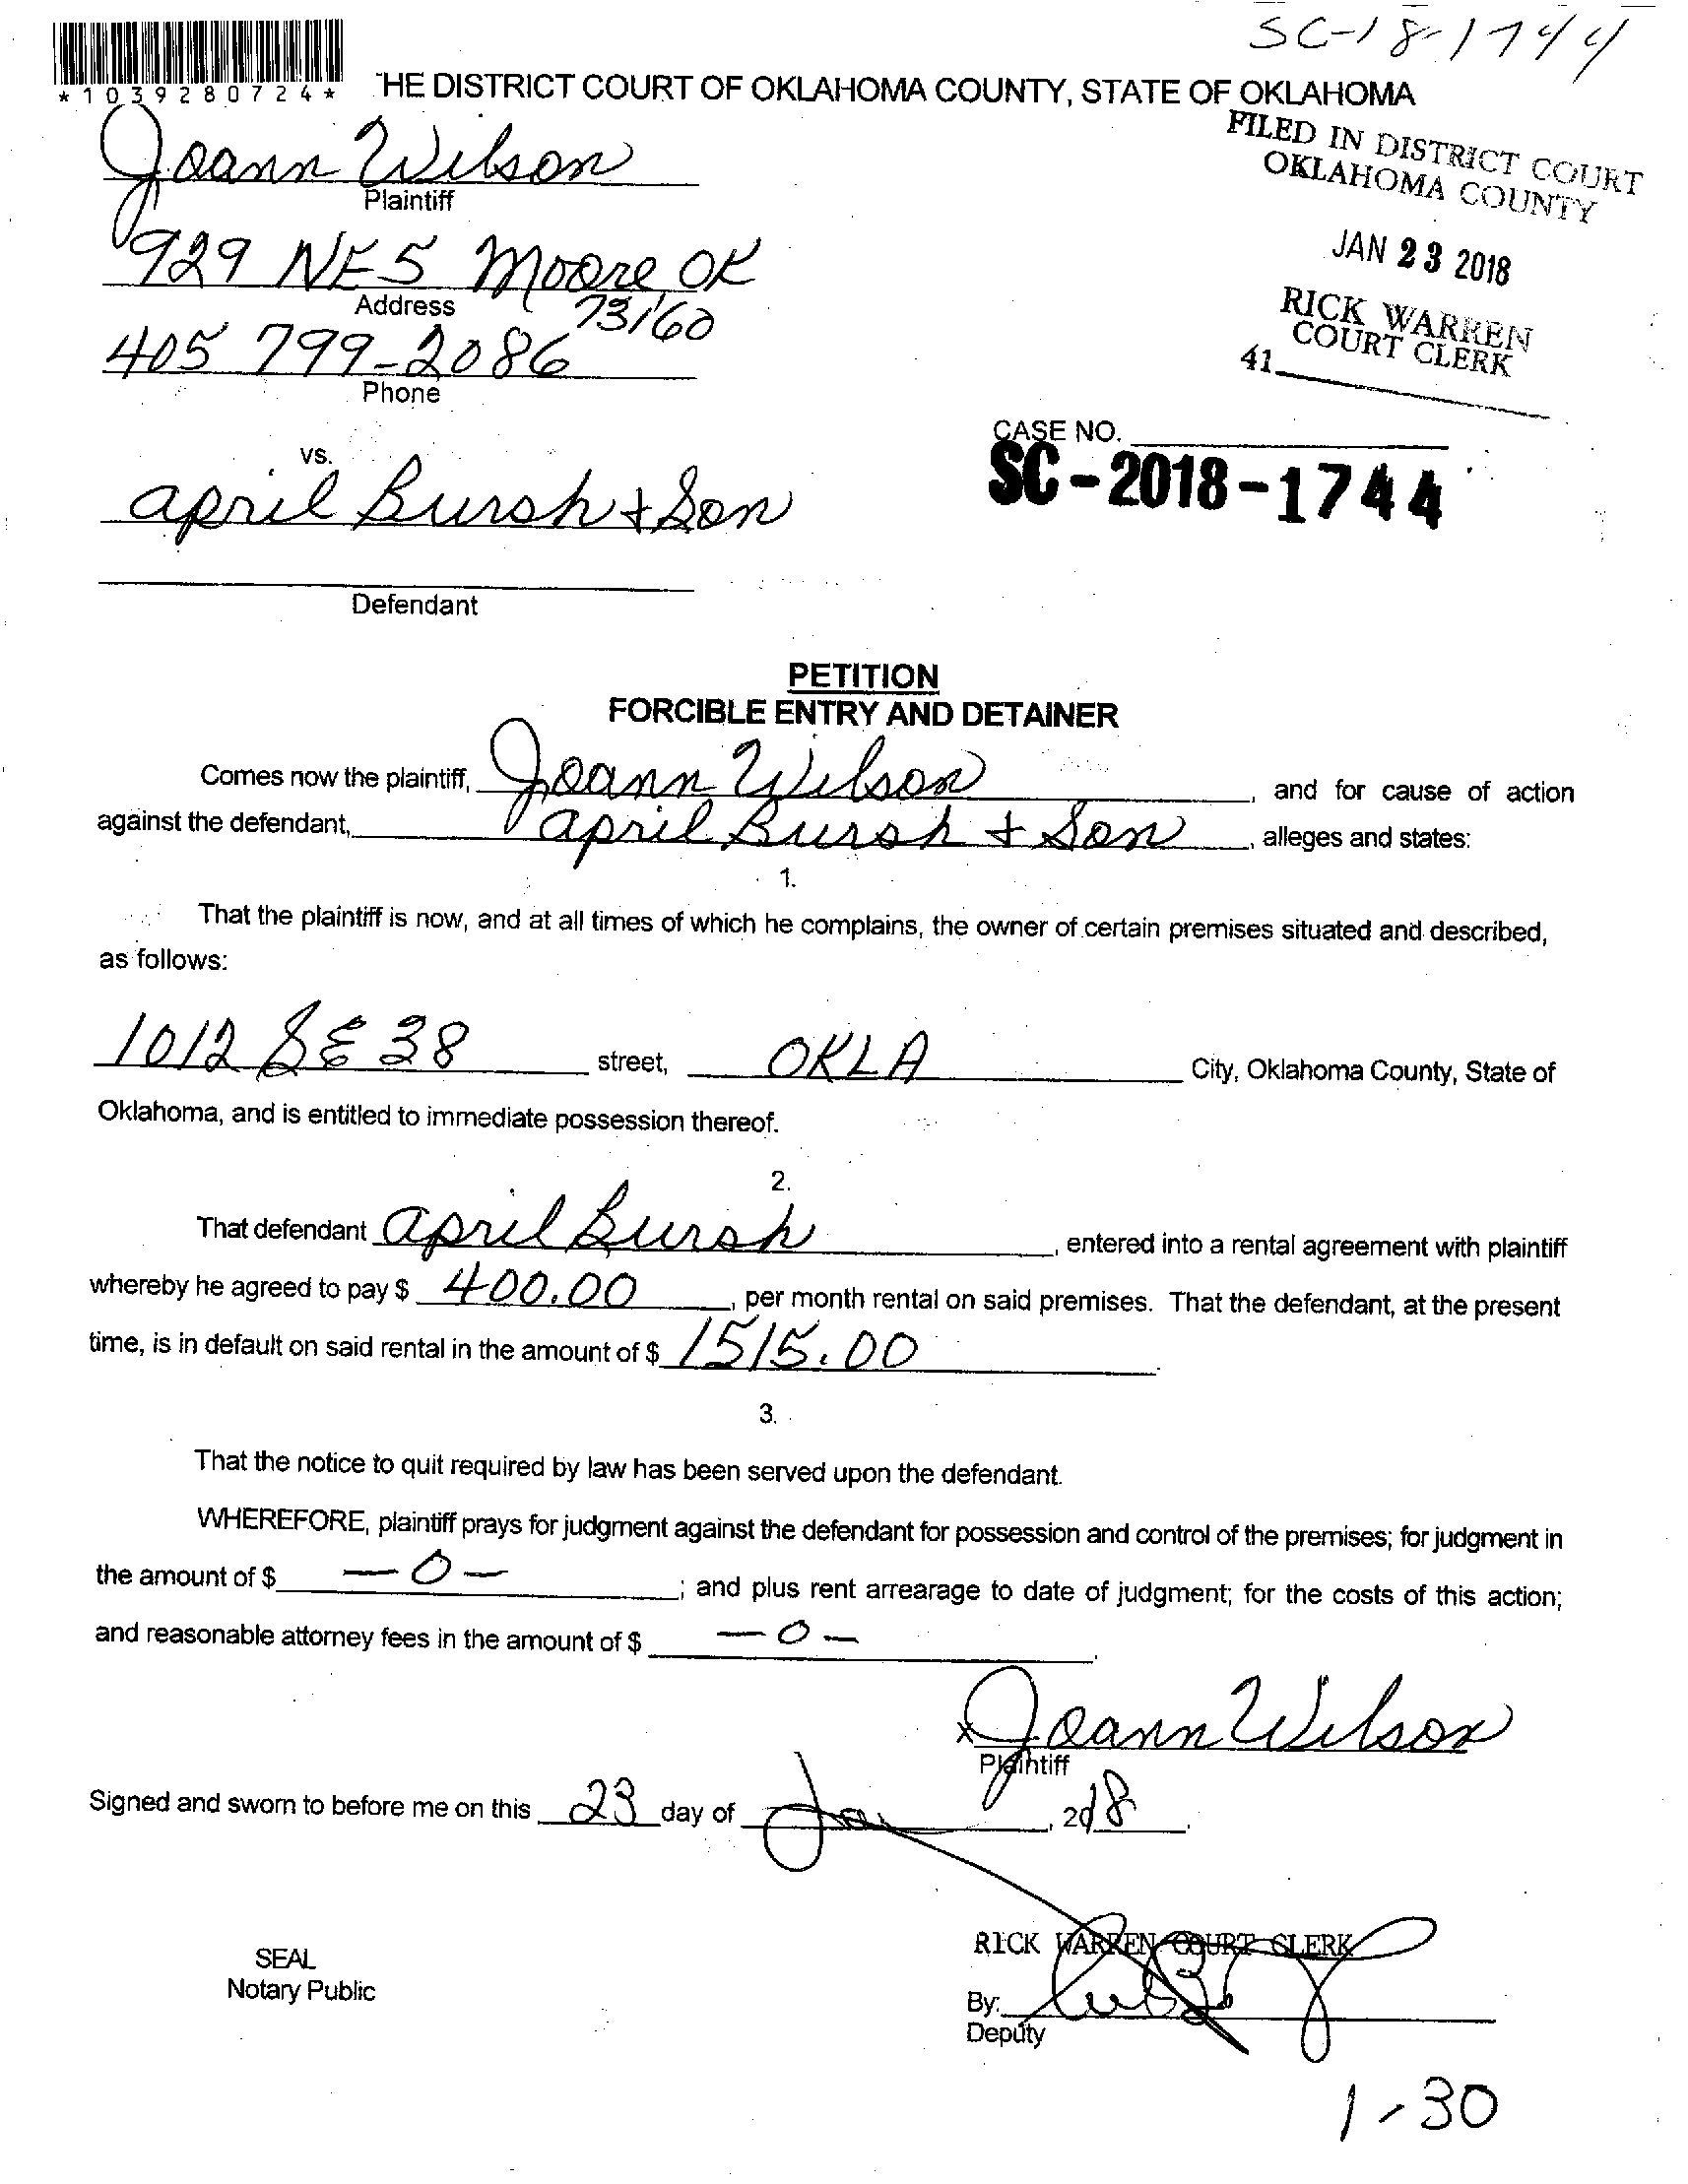 SC-18-1744
*1039280724*
HE DISTRICT COURT OF OKLAHOMA COUNTY, STATE OF OKLAHOMA
FILED IN DISTRICT COURT
OKLAHOMA COUNTY
JAN 23 2018
RICK WARREN
COURT CLERK
41
Joann Wilson
Plaintiff
929 NE 5 Moore OK
73160
Address
405 799-2086
Phone
CASE NO.
SC-2018-1744
vs.
April Bursh + Son
Defendant
PETITION
FORCIBLE ENTRY AND DETAINER
Comes now the plaintiff, Joann Wilson, and for cause of action
against the defendant, April Bursh + Son, alleges and states:
1.
That the plaintiff is now, and at all times of which he complains, the owner of certain premises situated and described,
as follows:
1012 SE 38 street, OKLA City, Oklahoma County, State of
Oklahoma, and is entitled to immediate possession thereof.
2.
That defendant April Bursh, entered into a rental agreement with plaintiff
whereby he agreed to pay $ 400.00, per month rental on said premises. That the defendant, at the present
time, is in default on said rental in the amount of $ 1515.00.
3.
That the notice to quit required by law has been served upon the defendant.
WHEREFORE, plaintiff prays for judgment against the defendant for possession and control of the premises; for judgment in
the amount of $ -0-; and plus rent arrearage to date of judgment; for the costs of this action;
and reasonable attorney fees in the amount of $ -0-.
x Joann Wilson
Plaintiff
Signed and sworn to before me on this 23 day of Jan, 2018.
RICK WARREN COURT CLERK
SEAL
Notary Public
By:
Deputy
1-30